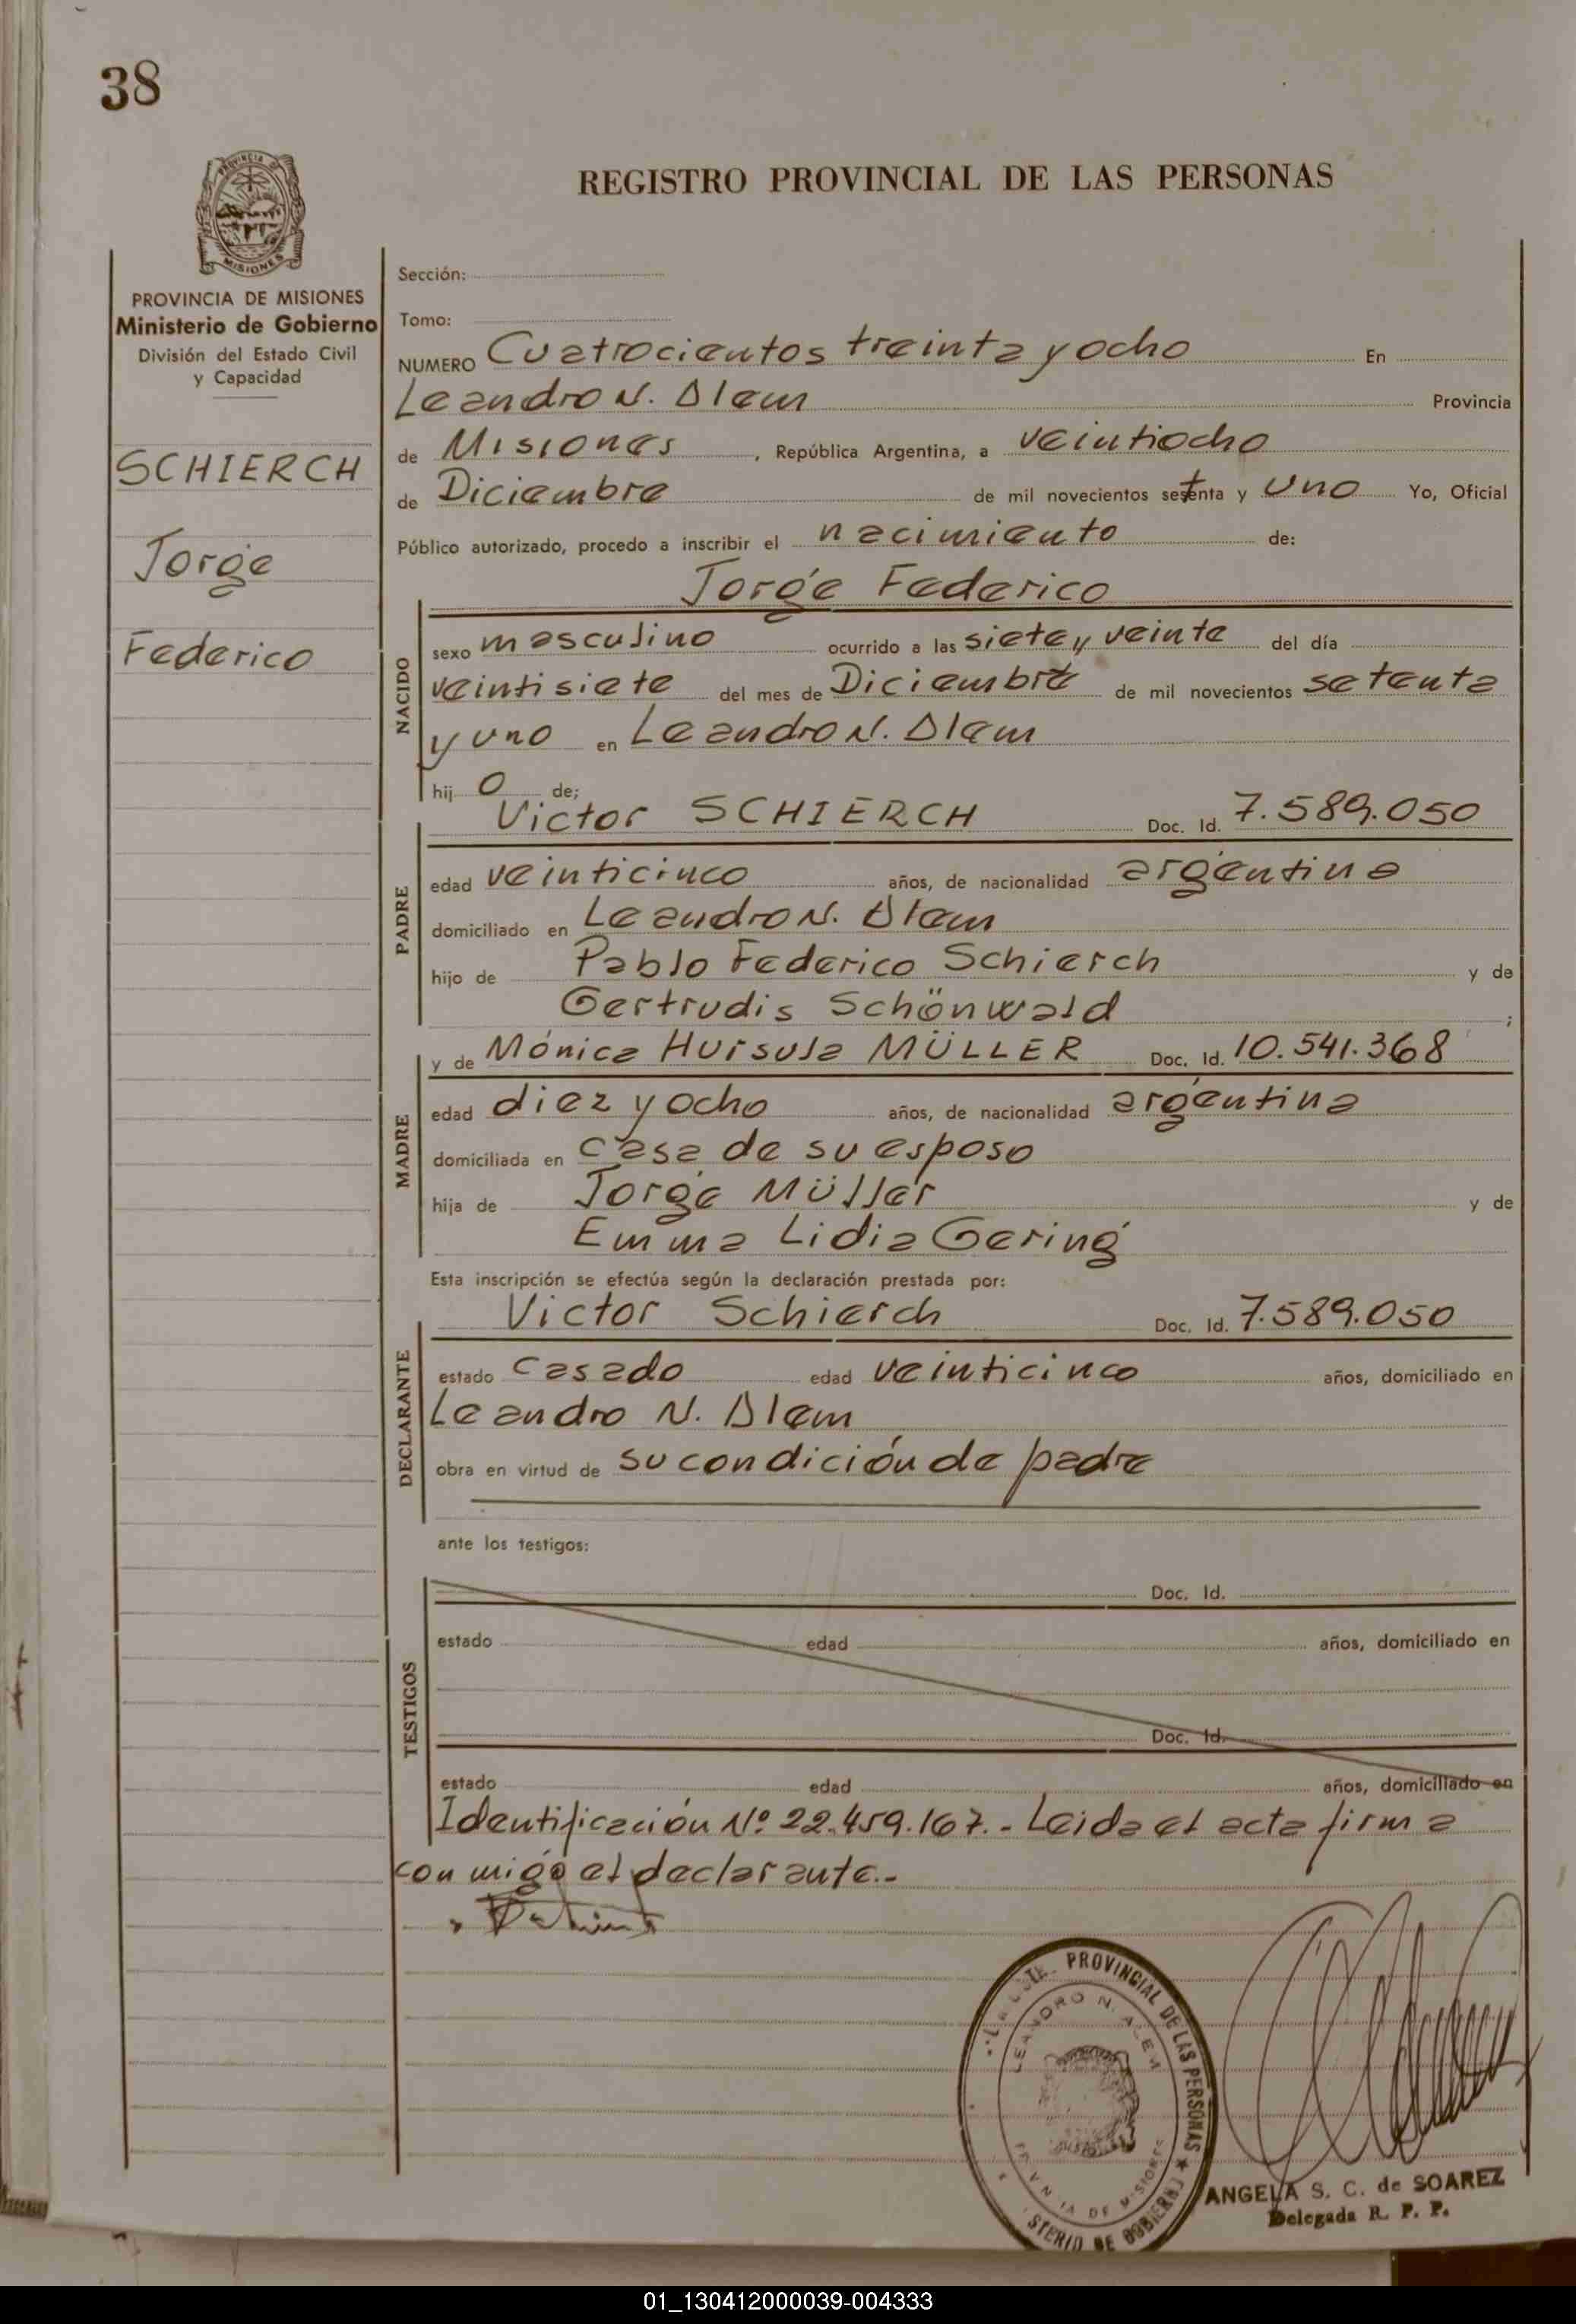 38
PROVINCIA
MISIONES
REGISTRO PROVINCIAL DE LAS PERSONAS
PROVINCIA DE MISIONES
Ministerio de Gobierno
División del Estado Civil
y Capacidad
SCHIERCH
Jorge
Federico
Sección:
Tomo:
NUMERO Cuatrocientos treinta y ocho En
Leandro N. Alem Provincia
de Misiones, República Argentina, a veintiocho
de Diciembre de mil novecientos setenta y uno Yo, Oficial
Público autorizado, procedo a inscribir el nacimiento de:
Jorge Federico
NACIDO
sexo masculino ocurrido a las siete y veinte del día
veintisiete del mes de Diciembre de mil novecientos setenta
y uno en Leandro N. Alem
hij o de;
Victor SCHIERCH Doc. Id. 7.589.050
PADRE
edad veinticinco años, de nacionalidad argentina
domiciliado en Leandro N. Alem
hijo de Pablo Federico Schierch y de
Gertrudis Schönwald ;
y de Mónica Hursula MÜLLER Doc. Id. 10.541.368
MADRE
edad diez y ocho años, de nacionalidad argentina
domiciliada en casa de su esposo
hija de Jorge Müller y de
Emma Lidia Gering
Esta inscripción se efectúa según la declaración prestada por:
Victor Schierch Doc. Id. 7.589.050
DECLARANTE
estado casado edad veinticinco años, domiciliado en
Leandro N. Alem
obra en virtud de su condición de padre
ante los testigos:
TESTIGOS
Doc. Id.
estado edad años, domiciliado en
Doc. Id.
estado edad años, domiciliado en
Identificación Nº 22.459.167.- Leida el acta firma
conmigo el declarante.-
PROVINCIAL DE LAS PERSONAS ★
LEANDRO N. ALEM
DE MISIONES
STERIO DE GOBIERNO
ANGELA S. C. de SOAREZ
Delegada R. P. P.
01_130412000039-004333